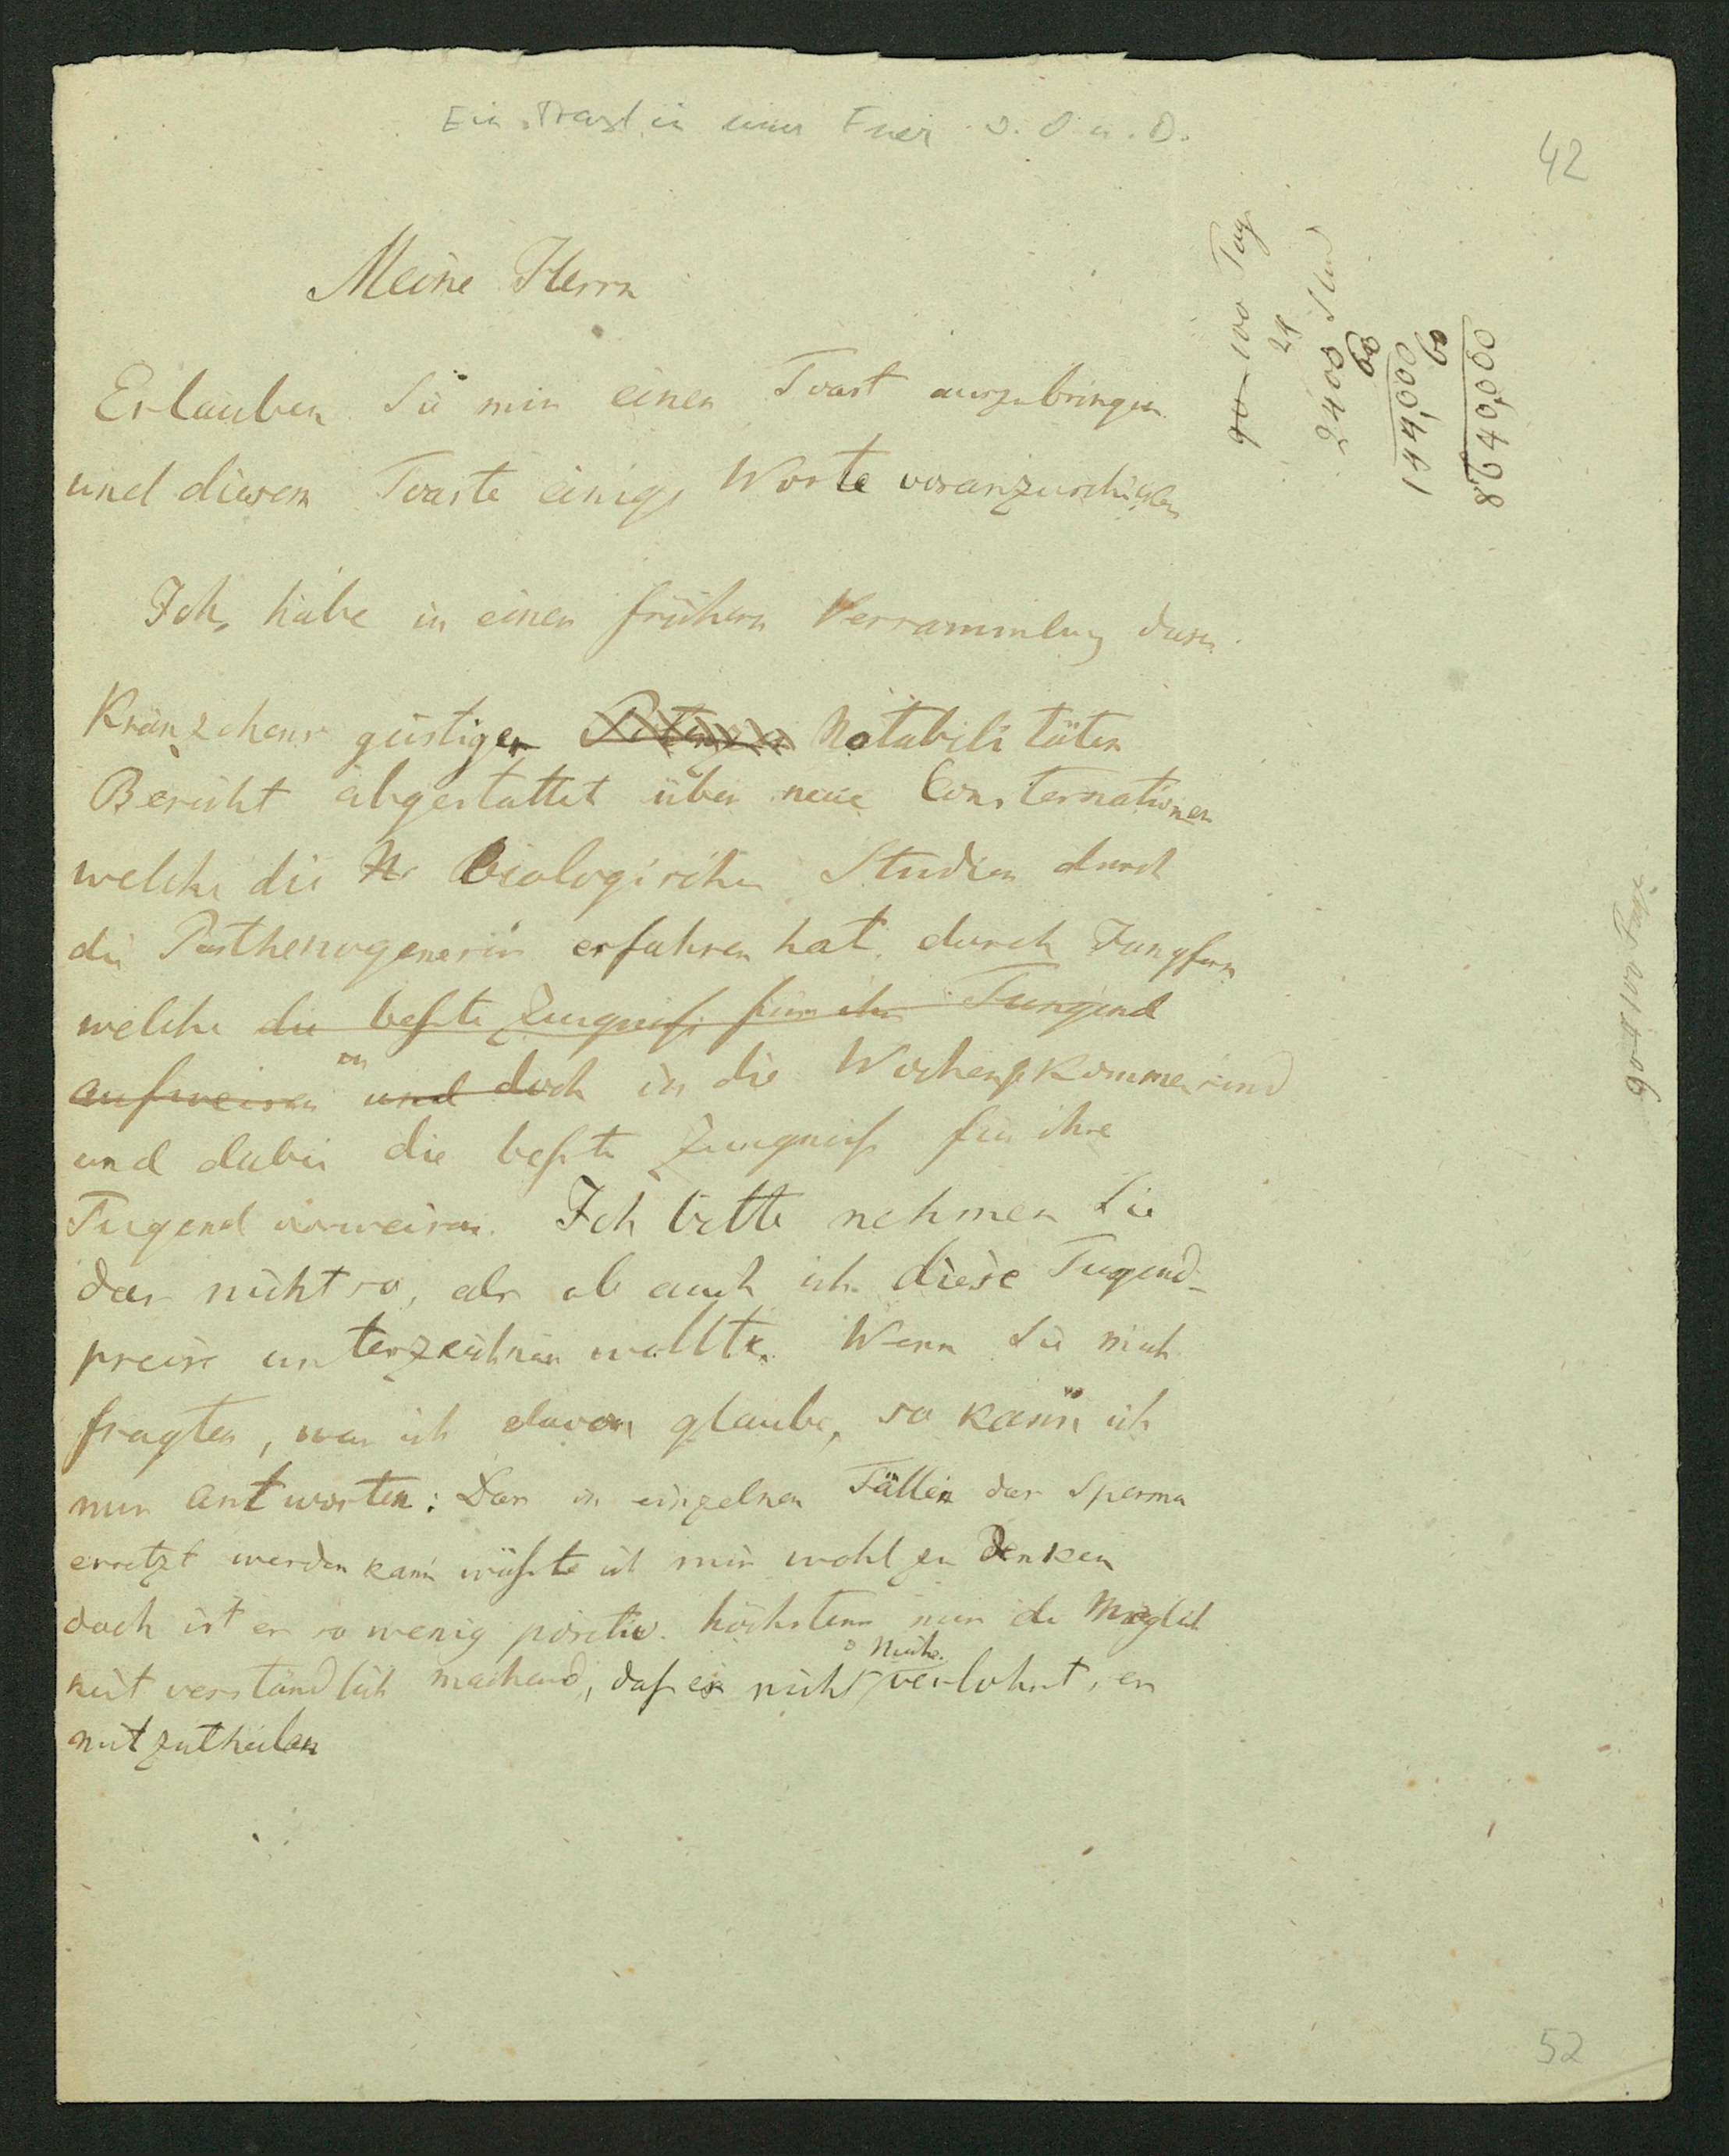 Ein Toast in einer Feier v. O u. D.
42
Meine Herrn
Erlauben Sie mir einen Toast auszubringen
und diesem Toaste einige Worte voranzuschicken
Ich habe in einer frühern Versammlung dieses
Kränzchens geistiger Potenzen Notabilitäten
Bericht abgestattet über neue Consternationen
welche die N biologischen Studien durch
die Parthenogenesis erfahren hat, durch Jungfern
welche die beßte Zeugniß für ihre Tungend
aufweisen und doch in die Wochen kommen sind
und dabei die beßte Zeugniß für ihre
Tugend vorweisen. Ich bitte nehmen Sie
das nicht so, als ob auch ich diese Tugend-
preise unterzeichnen wollte. Wenn Sie mich
fragten, was ich davon glaube, so kann ich
nur antworten: Das in einzelnen Fällen das Sperma
ersetzt werden kann wüßte ich mir wohl zu denken
doch ist es so wenig positiv höchstens nur die Möglich
keit verständlich machend, daß es nicht d Mühe verlohnt, es
mitzutheilen
90 100 Tag
24
2400 Stund
60
144,000
60
8640,000
90 + 100 Tage
52